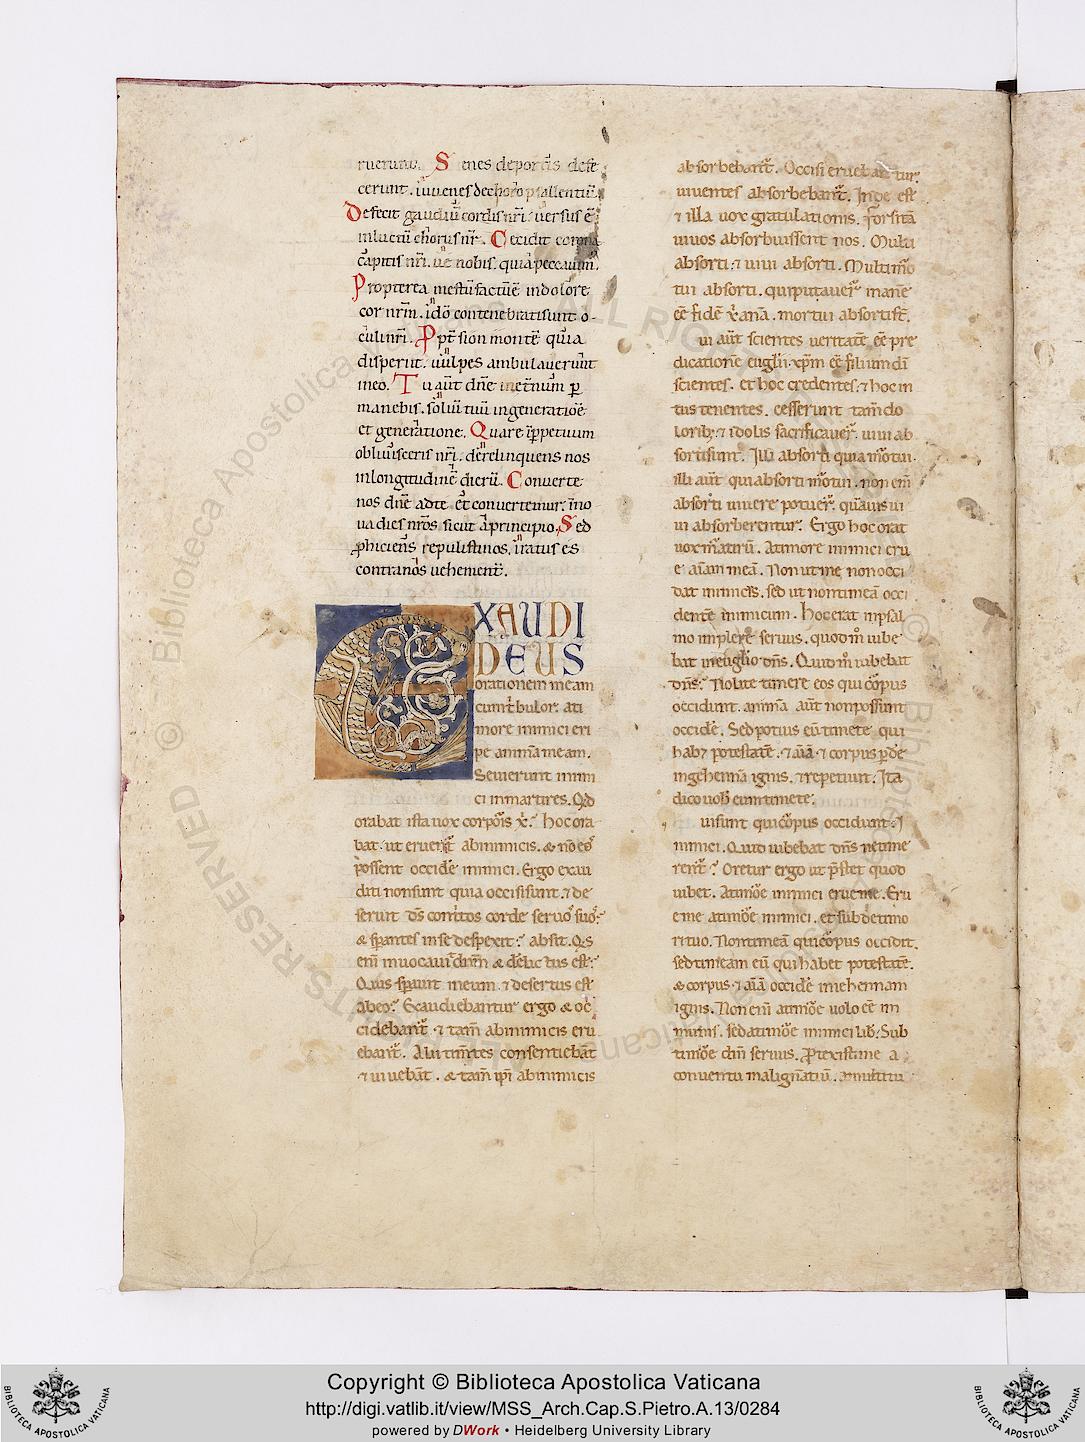 ruerunt. Senes deportis defe
cerunt. iuuenes dechoro psallentiū.
Defecit gaudiū cordis nr̄i. uersus ē
inluctū chorus nr̄. Cecidit corona
capitis nr̄i. ue nobis. quia peccauim.
Propterea mestū factū ē indolore
cor nrm̄. ideo contenebrati sunt o-
culi nr̄i. Ppt̄ sion montē quia
disperiit. uulpes ambulauerunt
ineo. Tu aut̄ dn̄e inet̄num p̄
manebis. soliū tuū ingeneratiōe
et generatione. Quare ip̄petuum
obliuisceris nr̄i. derelinquens nos
inlongitudinē dierū. Conuerte
nos dn̄e adte et conuertemur. īno
ua dies nr̄os sicut aprincipio. Sed
ꝓhiciens repulisti nos. iratus es
contra nos uehement̄.
EXAUDI
DEUS
orationem meam
cumt̄bulor. ati
more inimici eri
pe animā meam.
Seuierunt inimi
ci inmartires. Qd
orabat ista uox corporis xp̄i? hoc ora
bat. ut eruerēt̄ abinimicis. & nō eos
possent occidē inimici. Ergo exau
diti non sunt quia occisi sunt. ⁊ de
seruit ds̄ contritos corde seruos suos?
& sperantes in se despexit? absit. Qs
eni inuocauit dn̄m & delictus est?
Quis sperauit ineum. ⁊ desertus est
abeo? Exaudiebantur ergo & oc
cidebant̄. ⁊ tam̄ abinimicis eru
ebant̄. Alii timentes consentiebāt
⁊ uiuebāt. & tam̄ ip̄i abinimicis
absorbebant̄. Occisi eruebantur.
uiuentes absorbebant̄. Inde est
⁊ illa uox gratulationis. forsitā
uiuos absorbuissent nos. Multi
absorti. ⁊ uiui absorti. Multi mor
tui absorti. qui putauer̄ manē
eē fidē xp̄ianā. mortui absorti st̄.
ui aut̄ scientes ueritatē eē pre
dicationē euglii. xp̄m eē filium dī
scientes. et hoc credentes. ⁊ hoc in
tus tenentes. cesserunt tam̄ do
lorib; ⁊ idolis sacrificauer̄. uiui ab
sorti sunt. Illi absorti quia mortui.
illi aut̄ quia absorti mortui. non eni
absorti uiuere potuer̄. quāuis ui
ui absorberentur. Ergo hoc orat
uox martirū. Atimore inimici eru
e aīam meā. Non ut me non occi
dat inimicus. sed ut non timeā occi
dentē inimicum. Hoc erat inpsal
mo implere seruus. quod m̄ iube
bat ineuglio dn̄s. Quid m̄ iubebat
dn̄s? Nolite timere eos qui corpus
occidunt. animā aut̄ non possunt
occidē. Sed potius eū timete qui
hab; potestatē. ⁊ aīā. ⁊ corpus p̄de
ingehennā ignis. ⁊ repetiuit. Ita
dico uob̄ eum timete.
ui sunt qui corpus occidunt?
inimici. Quid iubebat dn̄s ne time
rent̄? Oretur ergo ut prestet quod
iubet. Atimore inimici erue me. Eru
e me atimore inimici. et subde timo
ri tuo. Non timeā qui corpus occidit.
sed timeam eū qui habet potestatē.
& corpus. ⁊ aīā occidē inehennam
ignis. Non eni atimore uolo eē in
munis. sed atimore inimici lib̄. Sub
timore dn̄i seruus. Protexisti me a
conuentu malignatiū. amultitu
© Biblioteca Apostolica Vaticana
ALL RIGHTS RESERVED
Copyright © Biblioteca Apostolica Vaticana
http://digi.vatlib.it/view/MSS_Arch.Cap.S.Pietro.A.13/0284
powered by DWork • Heidelberg University Library
BIBLIOTECA APOSTOLICA VATICANA
BIBLIOTECA APOSTOLICA VATICANA